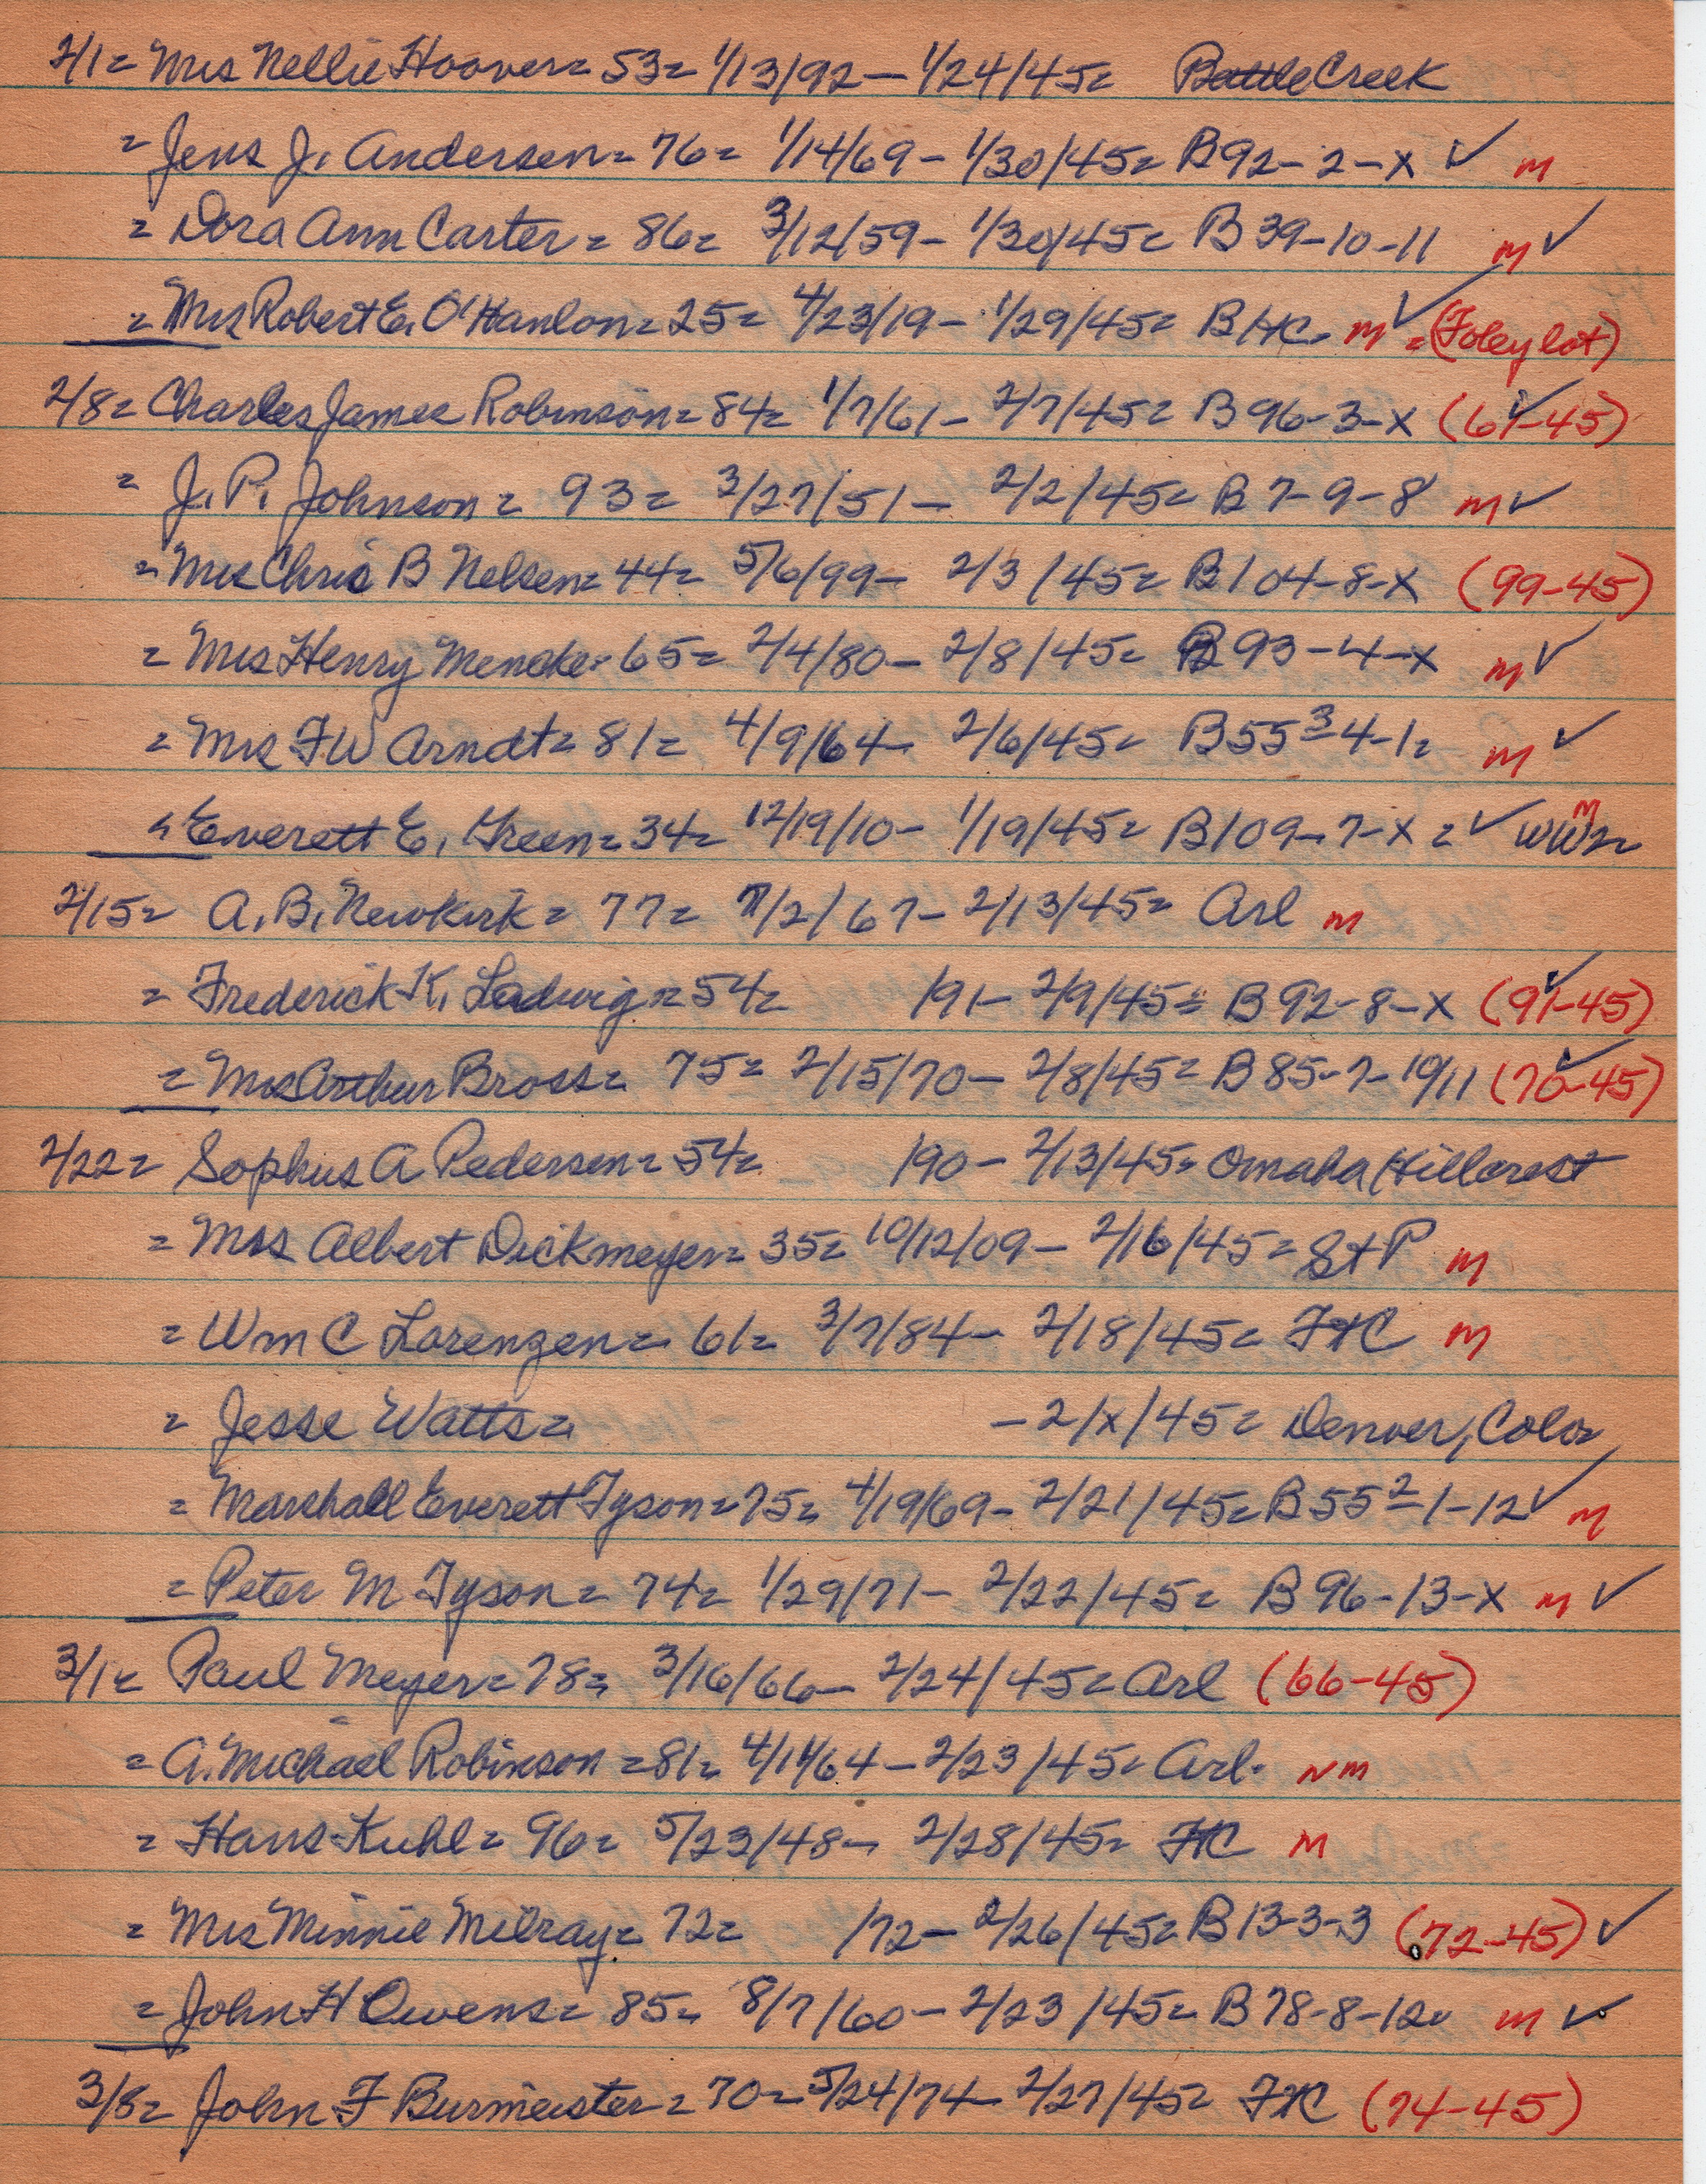 2/1= Mrs Nellie Hoover= 53= 1/13/92 – 1/24/45= Battle Creek
= Jens J. Andersen= 76= 1/14/69 – 1/30/45= B92-2-x ✓ m
= Dora Ann Carter = 86= 3/12/59 – 1/30/45= B 39-10-11 m ✓
= Mrs Robert E. O'Hanlon= 25= 4/23/19 – 1/29/45= B HC. m ✓ = (Foley lot)
2/8= Charles James Robinson= 84= 1/7/61 – 2/7/45= B 96-3-x (61-45) ✓
= J. P. Johnson = 93= 3/27/51 – 2/2/45= B 7-9-8 m ✓
= Mrs Chris B Nelsen= 44= 5/6/99 – 2/3/45= B104-8-x (99-45)
= Mrs Henry Mencke= 65= 2/4/80 – 2/8/45= B 93-4-x m ✓
= Mrs F W Arndt= 81= 4/9/64 – 2/6/45= B55³4-1= m ✓
= Everett E. Green= 34= 12/19/10 – 1/19/45= B109-7-x = ✓ WW2 m
2/15= A. B. Newkirk = 77= /2/67 – 2/13/45= Arl m
= Frederick K. Ladwig = 54= /91 – 2/9/45= B 92-8-x (91-45) ✓
= Mrs Arthur Bross= 75= 2/15/70 – 2/8/45= B 85-7-10/11 (70-45) ✓
2/22= Sophus A Pedersen= 54= /90 – 2/13/45= Omaha Hillcrest
= Mrs Albert Dickmeyer= 35= 10/12/09 – 2/16/45= St P m
= Wm C Lorenzen= 61= 3/7/84 – 2/18/45= FHC m
= Jesse Watts= – 2/x/45= Denver, Colo=
= Marshall Everett Tyson= 75= 4/19/69 – 2/21/45= B55²-1-12 ✓ m
= Peter M Tyson= 74= 1/29/71 – 2/22/45= B 96-13-x m ✓
3/1= Paul Meyer= 78= 3/16/66 – 2/24/45= Arl (66-45)
= A. Michael Robinson = 81= 4/14/64 – 2/23/45= Arl. NM
= Hans Kuhl= 96= 5/23/48 – 2/28/45= FHC m
= Mrs Minnie Milray= 72= /72 – 2/26/45= B 13-3-3 (72-45) ✓
= John H Owens= 85= 8/7/60 – 2/23/45= B 78-8-12= m ✓
3/8= John F Burmeister= 70= 5/24/74 – 2/27/45= FHC (74-45)